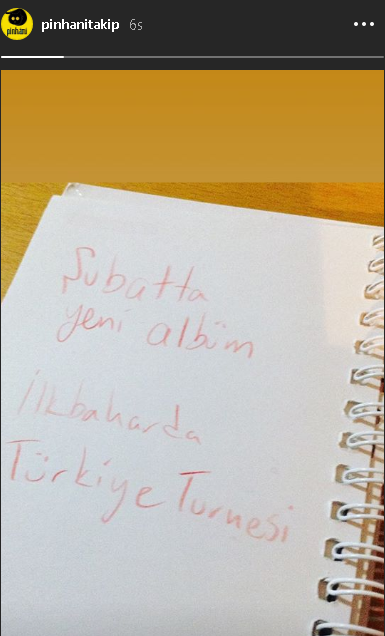 pinhani
pinhanitakip 6s
Şubatta
yeni albüm
İlkbaharda
Türkiye Turnesi